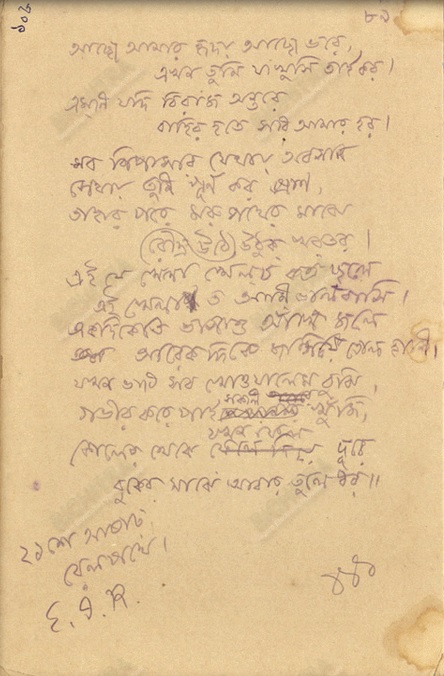 ১০৬
৮৯
আছে আমার হৃদয় আছে ভরে,
এখন তুমি যা খুসি তাই কর।
এমনি যদি বিরাজ অন্তরে
বাহির হতে সবি আমার হর।
সব পিপাসার যেথায় অবসান
সেথায় তুমি পূর্ণ কর প্রাণ,
তাহার পরে মরু পথের মাঝে
(রৌদ্র উঠে) উঠুক খরতর।
এই যে খেলা খেলচ কত ছলে
এই খেলা ত আমি ভালবাসি।
একদিকেতে ভাসাও আঁখি জলে
আরেক দিকে জাগিয়ে তোল হাসি।
যখন ভাবি সব খোওয়ালেম বুঝি,
গভীর করে পাই খুঁজি,
কোলের থেকে যখন ফেল দূরে
বুকের মাঝে আবার তুলে ধর॥
২১শে আষাঢ়
রেলপথে।
E. I. R.